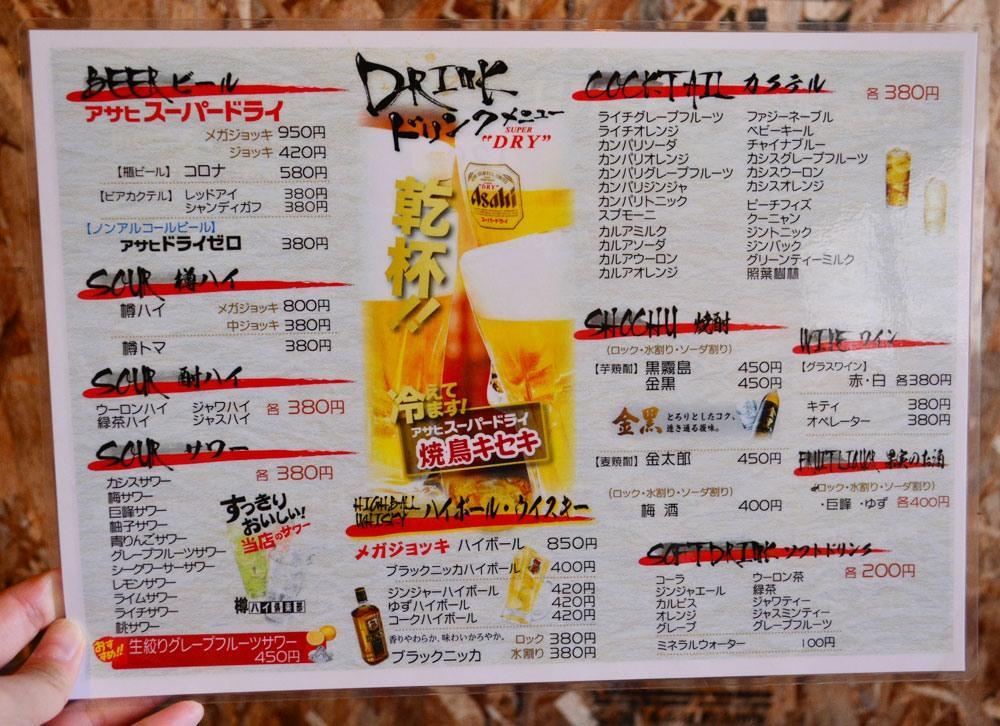 BEER ビール
アサヒ スーパードライ
メガジョッキ 950円
ジョッキ 420円
【瓶ビール】 コロナ 580円
【ビアカクテル】 レッドアイ 380円
シャンディガフ 380円
【ノンアルコールビール】
アサヒドライゼロ 380円
SOUR 樽ハイ
樽ハイ メガジョッキ 800円
中ジョッキ 380円
樽トマ 380円
SOUR 酎ハイ
ウーロンハイ ジャワハイ 各 380円
緑茶ハイ ジャスハイ
SOUR サワー
各 380円
カシスサワー
梅サワー
巨峰サワー
柚子サワー
青りんごサワー
グレープフルーツサワー
シークワーサーサワー
レモンサワー
ライムサワー
ライチサワー
桃サワー
すっきり
おいしい!
当店のサワー
樽ハイ倶楽部
おすすめ!! 生絞りグレープフルーツサワー
450円
DRINK
ドリンクメニュー
SUPER
"DRY"
Asahi
スーパードライ
乾杯!!
冷えてます!
アサヒスーパードライ
焼鳥キセキ
HIGHBALL
WHISKY ハイボール・ウイスキー
メガジョッキ ハイボール 850円
ブラックニッカハイボール 400円
ジンジャーハイボール 420円
ゆずハイボール 420円
コークハイボール 420円
香りやわらか、味わいかろやか。 ロック 380円
ブラックニッカ 水割り 380円
COCKTAIL カクテル 各 380円
ライチグレープフルーツ ファジーネーブル
ライチオレンジ ベビーキール
カンパリソーダ チャイナブルー
カンパリオレンジ カシスグレープフルーツ
カンパリグレープフルーツ カシスウーロン
カンパリジンジャ カシスオレンジ
カンパリトニック ピーチフィズ
スプモーニ クーニャン
カルアミルク ジントニック
カルアソーダ ジンバック
カルアウーロン グリーンティーミルク
カルアオレンジ 照葉樹林
SHOCHU 焼酎
(ロック・水割り・ソーダ割り)
【芋焼酎】 黒霧島 450円
金黒 450円
金黒 とろりとしたコク、
透き通る後味。
【麦焼酎】 金太郎 450円
(ロック・水割り・ソーダ割り)
梅 酒 400円
WINE ワイン
【グラスワイン】
赤・白 各380円
キティ 380円
オペレーター 380円
FRUIT LIQUOR 果実のお酒
(ロック・水割り・ソーダ割り)
・巨峰・ゆず 各400円
SOFT DRINK ソフトドリンク
各 200円
コーラ ウーロン茶
ジンジャエール 緑茶
カルピス ジャワティー
オレンジ ジャスミンティー
グレープ グレープフルーツ
ミネラルウォーター 100円